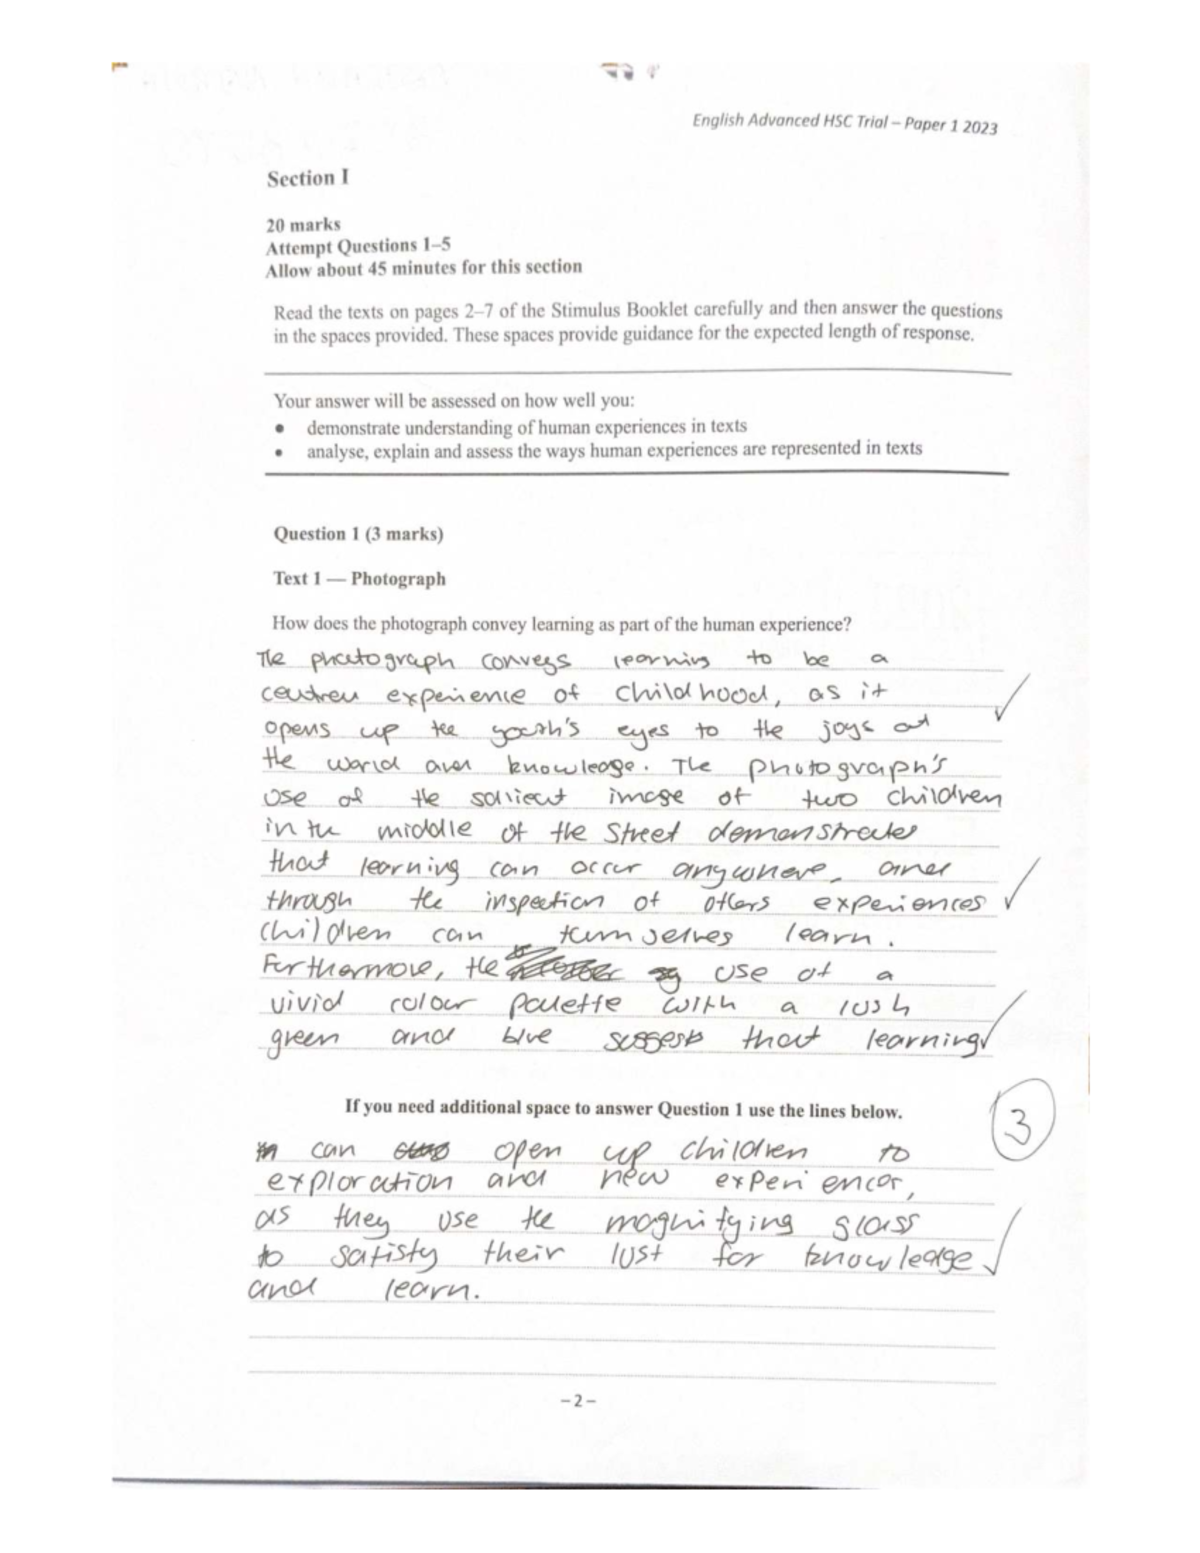 English Advanced HSC Trial – Paper 1 2023
Section I
20 marks
Attempt Questions 1–5
Allow about 45 minutes for this section
Read the texts on pages 2–7 of the Stimulus Booklet carefully and then answer the questions
in the spaces provided. These spaces provide guidance for the expected length of response.
Your answer will be assessed on how well you:
• demonstrate understanding of human experiences in texts
• analyse, explain and assess the ways human experiences are represented in texts
Question 1 (3 marks)
Text 1 — Photograph
How does the photograph convey learning as part of the human experience?
The photograph conveys learning to be a
experience of childhood, as it
opens up the youth's eyes to the joys of
the world and knowledge. The photograph's
use of the salient image of two children
in the middle of the street demonstrates
that learning can occur anywhere, and
through the inspection of others experiences
children can themselves learn.
Furthermore, the use of a
vivid colour palette with a lush
green and blue suggests that learning
If you need additional space to answer Question 1 use the lines below.
3
can open up children to
exploration and new experiences,
as they use the magnifying glass
to satisfy their lust for knowledge
and learn.
– 2 –